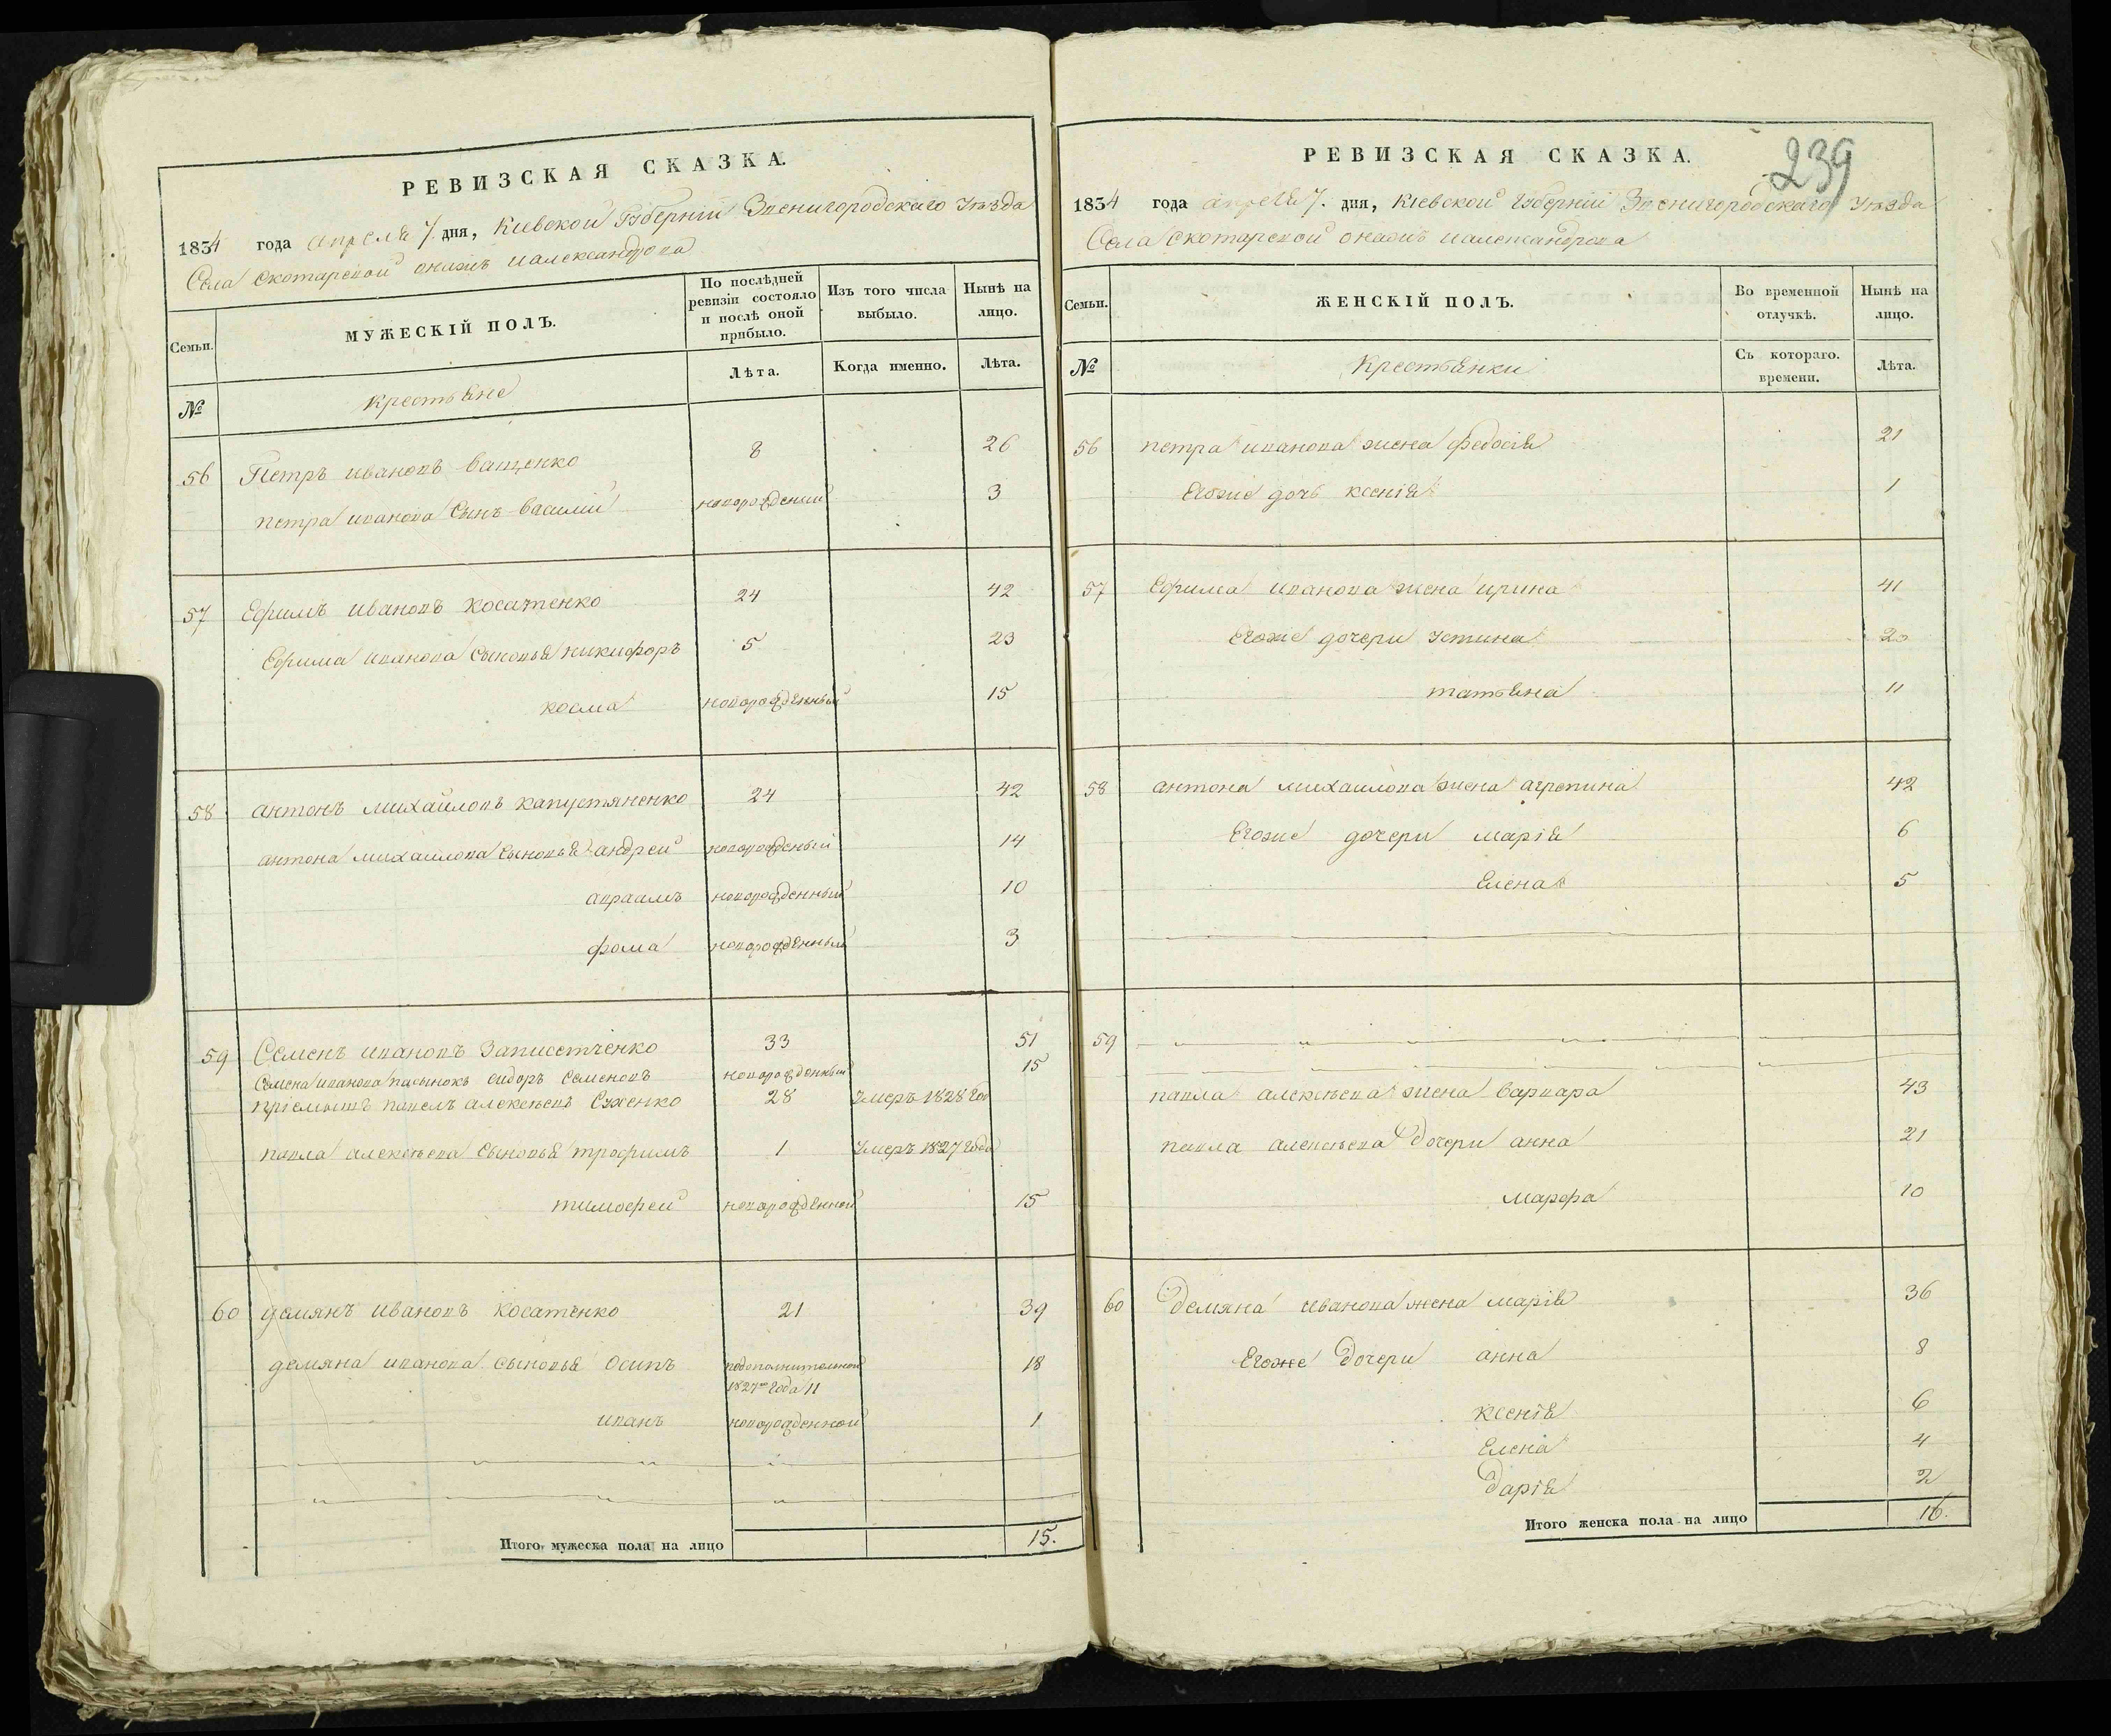 РЕВИЗСКАЯ СКАЗКА.
1834 года апреля 7. дня, Киевской Губернии Звенигородскаго Уезда
Села Скотаревой
Семьи.
МУЖЕСКІЙ ПОЛЪ.
По послѣдней ревизіи состояло и послѣ оной прибыло.
Изъ того числа выбыло.
Нынѣ на лицо.
№
крестьяне
Лѣта.
Когда именно.
Лѣта.
56 Петръ Ивановъ Ващенко 8 26
петра иванова Сынъ василий новорожденый 3
57 Ефимъ Ивановъ Косатенко 24 42
Ефима иванова Сыновья никифоръ 5 23
косма новорожденный 15
58 антонъ михайловъ капустяненко 24 42
антона михаилова Сыновья андрей новорожденый 14
авраамъ новорожденный 10
фома новорожденный 3
59 Семенъ ивановъ 33 51
Семена иванова пасынокъ сидоръ Семеновъ новорожденный 15
приемышъ павелъ алексѣевъ 28 Умеръ 1828 Год
павла алексѣева Сыновья трофимъ 1 Умеръ 1827 Года
тимофей новорожденной 15
60 демянъ Ивановъ косатенко 21 39
демяна иванова Сыновья Осипъ 18
1827го Года 11
иванъ новорожденной 1
Итого мужеска пола на лицо 15.
239
РЕВИЗСКАЯ СКАЗКА.
1834 года апреля 7. дня, Кіевской Губерніи Звенигородскаго Уезда
Села Скотаревой
Семьи.
ЖЕНСКІЙ ПОЛЪ.
Во временной отлучкѣ.
Нынѣ на лицо.
№
Крестьянки
Съ котораго. времени.
Лѣта.
56 петра иванова жена федосія 21
Егоже дочь ксенія 1
57 Ефима иванова жена ирина 41
Егоже дочери Устина 20
татьяна 11
58 антона михаилова жена агрепина 42
Егоже дочери марія 6
Елена 5
59
павла алексѣева жена варвара 43
павла алексѣева Дочери анна 21
марфа 10
60 Демяна иванова жена марія 36
Егоже Дочери анна 8
ксенія 6
Елена 4
Дарія 2
Итого женска пола на лицо 16.